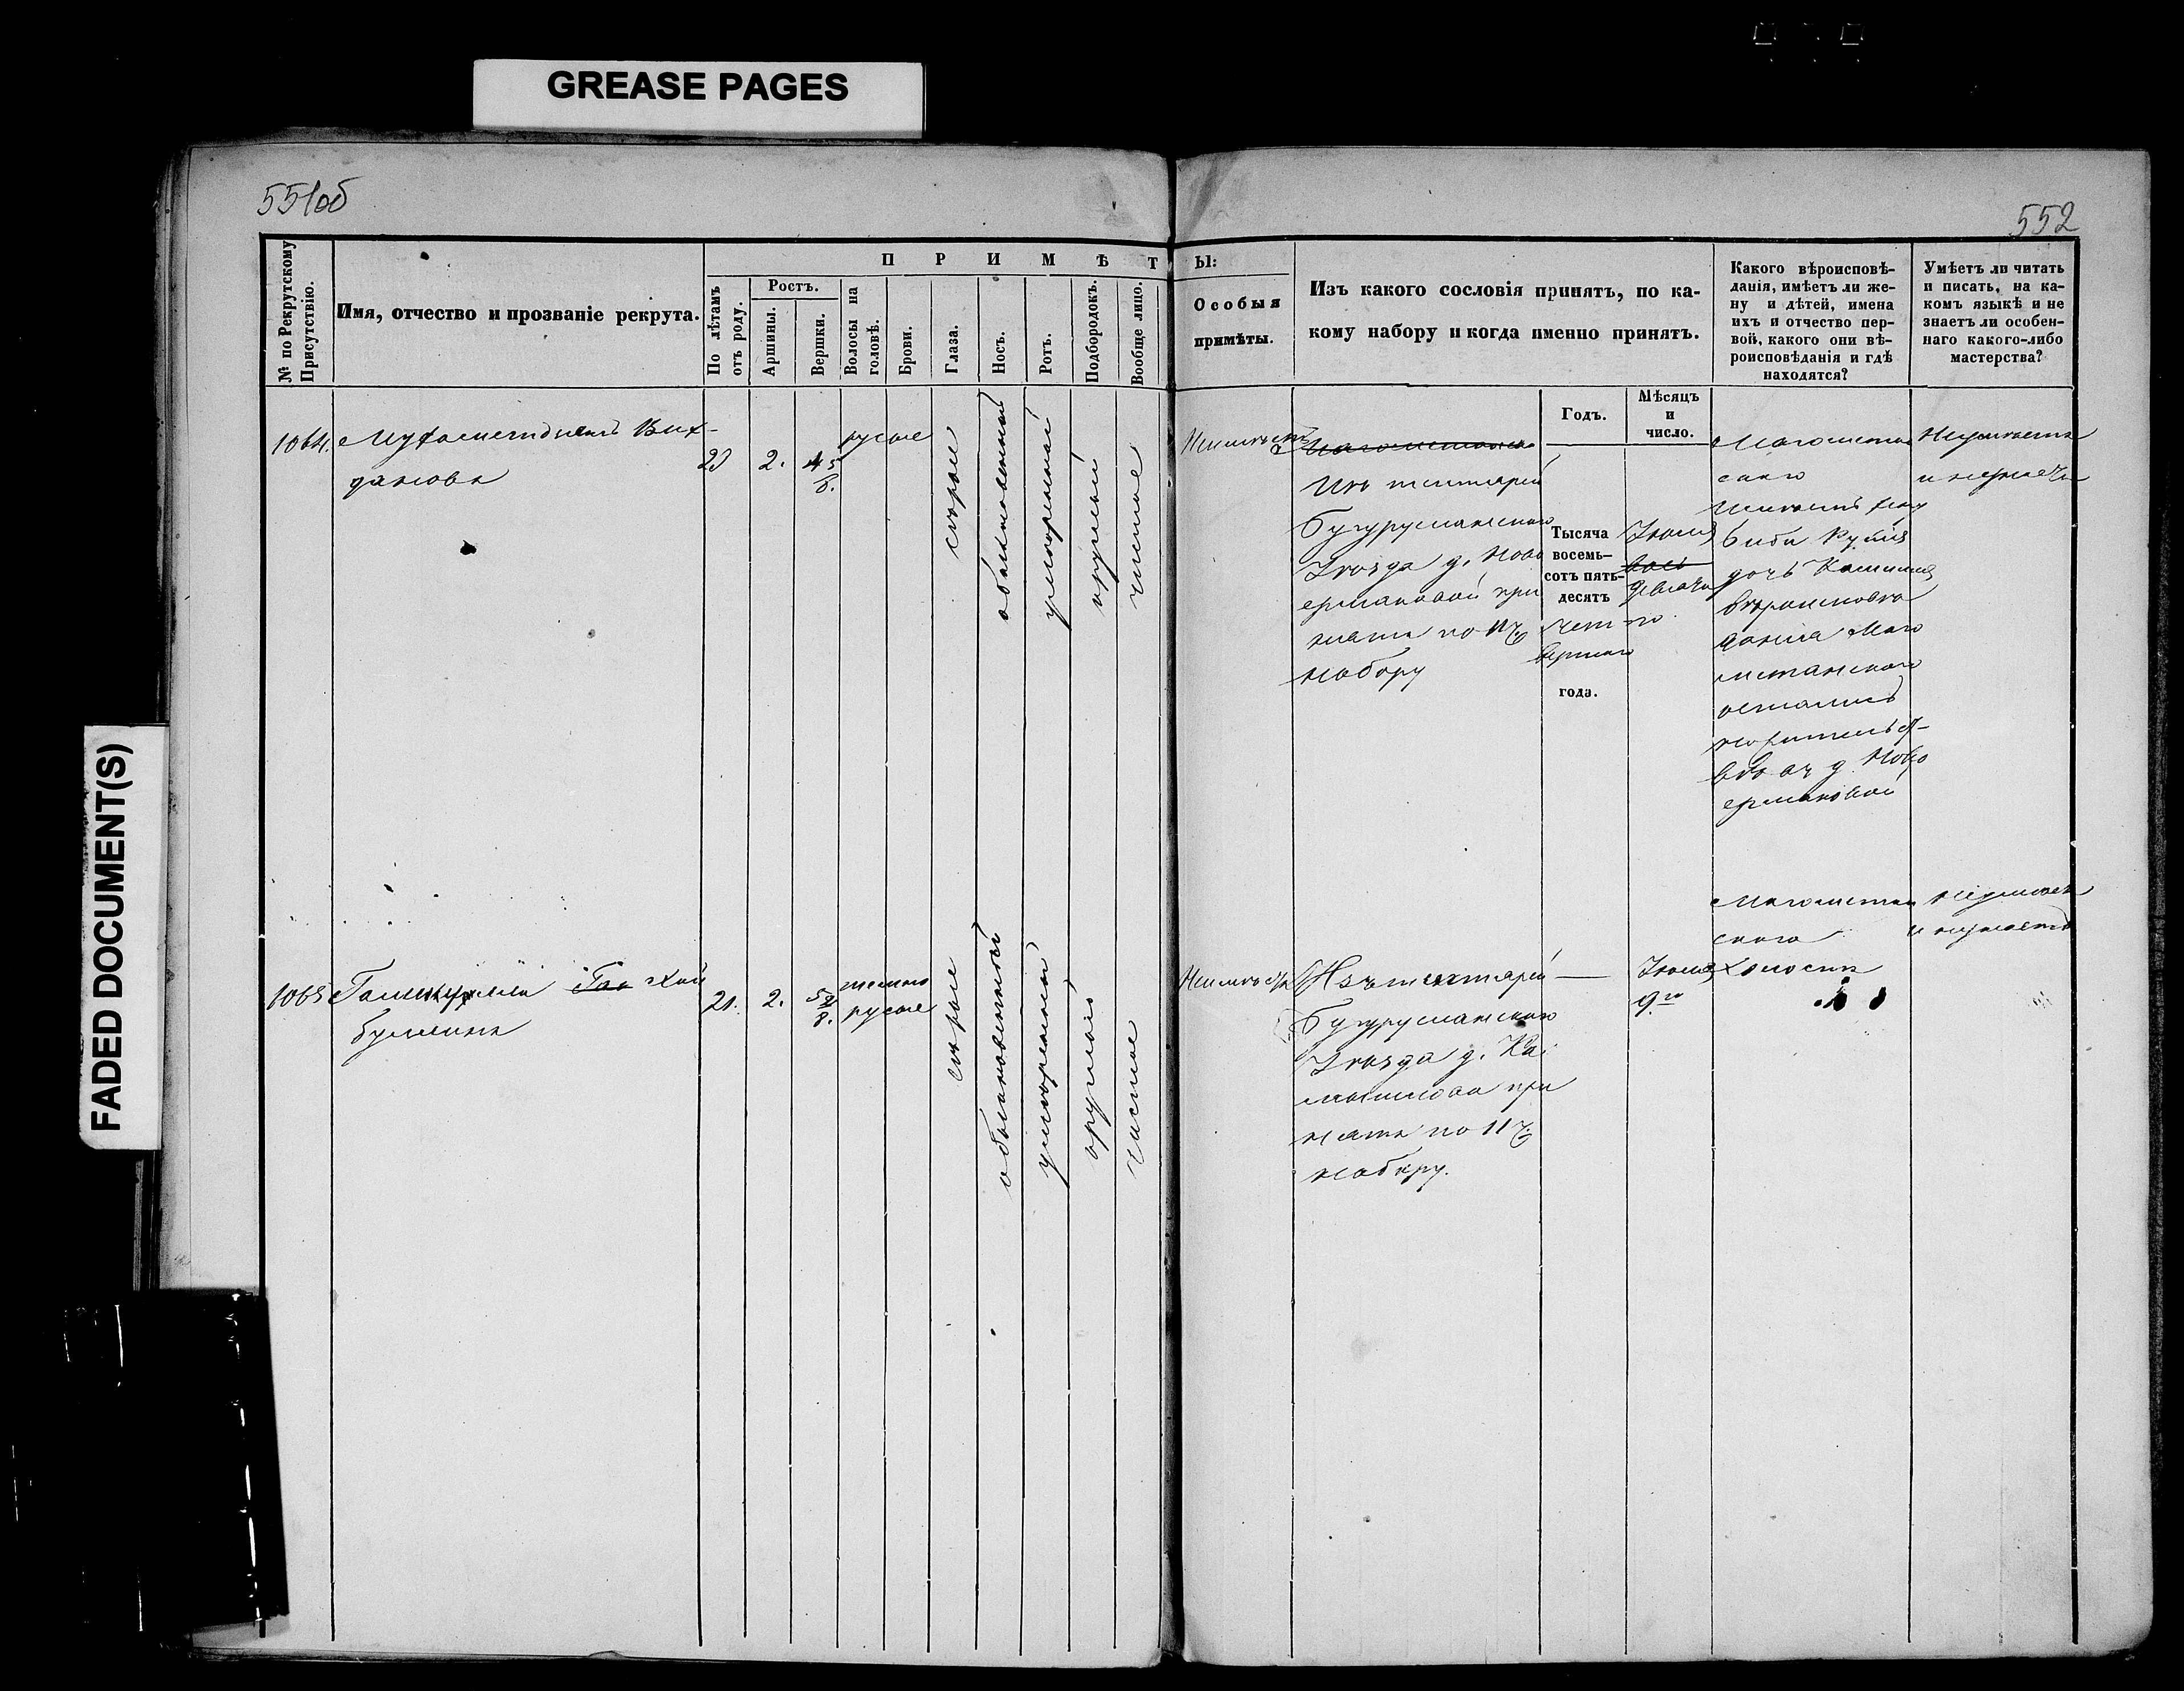 GREASE PAGES
FADED DOCUMENT(S)
551об
552
№ по Рекрутскому Присутствію.
Имя, отчество и прозваніе рекрута.
ПРИМѢТЫ:
По лѣтамъ отъ роду.
Ростъ.
Аршины.
Вершки.
Волосы на головѣ.
Брови.
Глаза.
Носъ.
Ротъ.
Подбородокъ.
Вообще лицо.
Особыя
примѣты.
Изъ какого сословія принятъ, по ка-
кому набору и когда именно принятъ.
Какого вѣроисповѣ-
данія, имѣетъ ли же-
ну и дѣтей, имена
ихъ и отчество пер-
вой, какого они вѣ-
роисповѣданія и гдѣ
находятся?
Умѣетъ ли читать
и писать, на ка-
комъ языкѣ и не
знаетъ ли особен-
наго какого-либо
мастерства?
Годъ.
Мѣсяцъ
и
число.
1064.
2.
4 5/8.
русые
сѣрые
обыкновенный
умѣренный
круглый
чистое
Неимѣетъ
Изъ тептярей
Бугурусланскаго
Уѣзда д. Ново
ермаковой при
нятъ по 11 ч.
набору
Тысяча
восемь-
сотъ пять-
десятъ
чет-
вертаго
года.
Іюня
девята
го.
Магометан
скаго
Имѣетъ жену
биби
дочь
вѣроисповѣ
данія Маго
метанскаго
остались
въ д. Ново
ермаковой
Неумѣетъ
1065
бумина
21.
2.
5 2/8.
темно
русые
сѣрые
обыкновенный
умѣренный
круглый
чистое
Неимѣетъ
Изъ тептярей
Бугурусланскаго
Уѣзда д.
при
нятъ по 11 ч.
набору.
Іюня
9го
Магометан
скаго
Холостъ
неумѣетъ
и незнаетъ